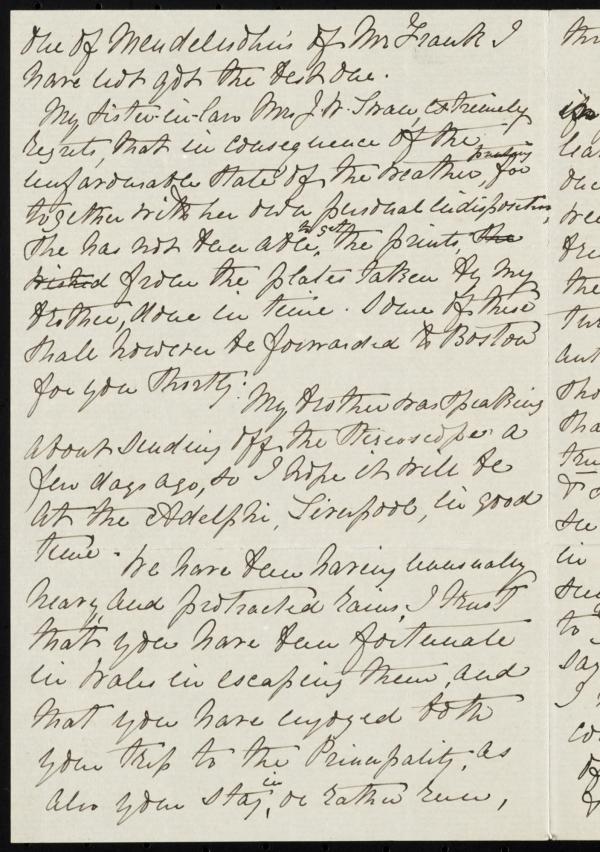 one of Mendelssohn's of Mr Frank I
have not got the best one.
My sister-in-law Mrs J. W. Swan, extremely
regrets, that in consequence of the
unfavourable state of the weather, for printing
together with her own personal indisposition,
she has not been able, to get the prints, the
wished from the plates taken by my
brother, done in time. Some of these
shall however be forwarded to Boston
for you shortly.
My brother was speaking
about sending off the Stereoscope a
few days ago, so I hope it will be
at the Adelphi, Liverpool, in good
time.
We have been having unusually
heavy, and protracted rains, I trust
that you have been fortunate
in Wales in escaping them, and
that you have enjoyed both
your trip to the Principality, as
also your stay, in, or rather even,